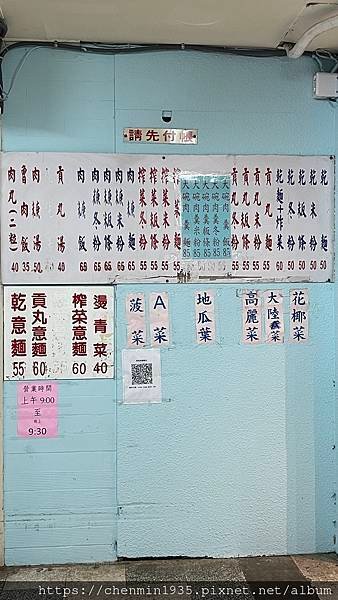 請先付帳
乾麵 50
乾米粉 50
乾冬粉 50
乾板條 50
乾麵
貢丸麵 55
貢丸米粉 55
貢丸冬粉 55
貢丸板條 55
大碗肉羹麵 85
大碗肉羹米粉 85
大碗肉羹冬粉 85
大碗肉羹板條 85
大碗肉羹飯 85
榨菜麵 55
榨菜米粉 55
榨菜冬粉 55
榨菜板條 55
肉羹麵 65
肉羹米粉 65
肉羹冬粉 65
肉羹板條 65
肉羹飯 65
貢丸湯 40
肉羹湯 50
魯肉飯 35
肉丸(二粒) 40
燙青菜 40
榨菜意麵 60
貢丸意麵 60
乾意麵 55
花椰菜
大陸菜
高麗菜
地瓜葉
A菜
菠菜
營業時間
上午9:00
至
晚上
9:30
https://chenmin1935.pixnet.net/album